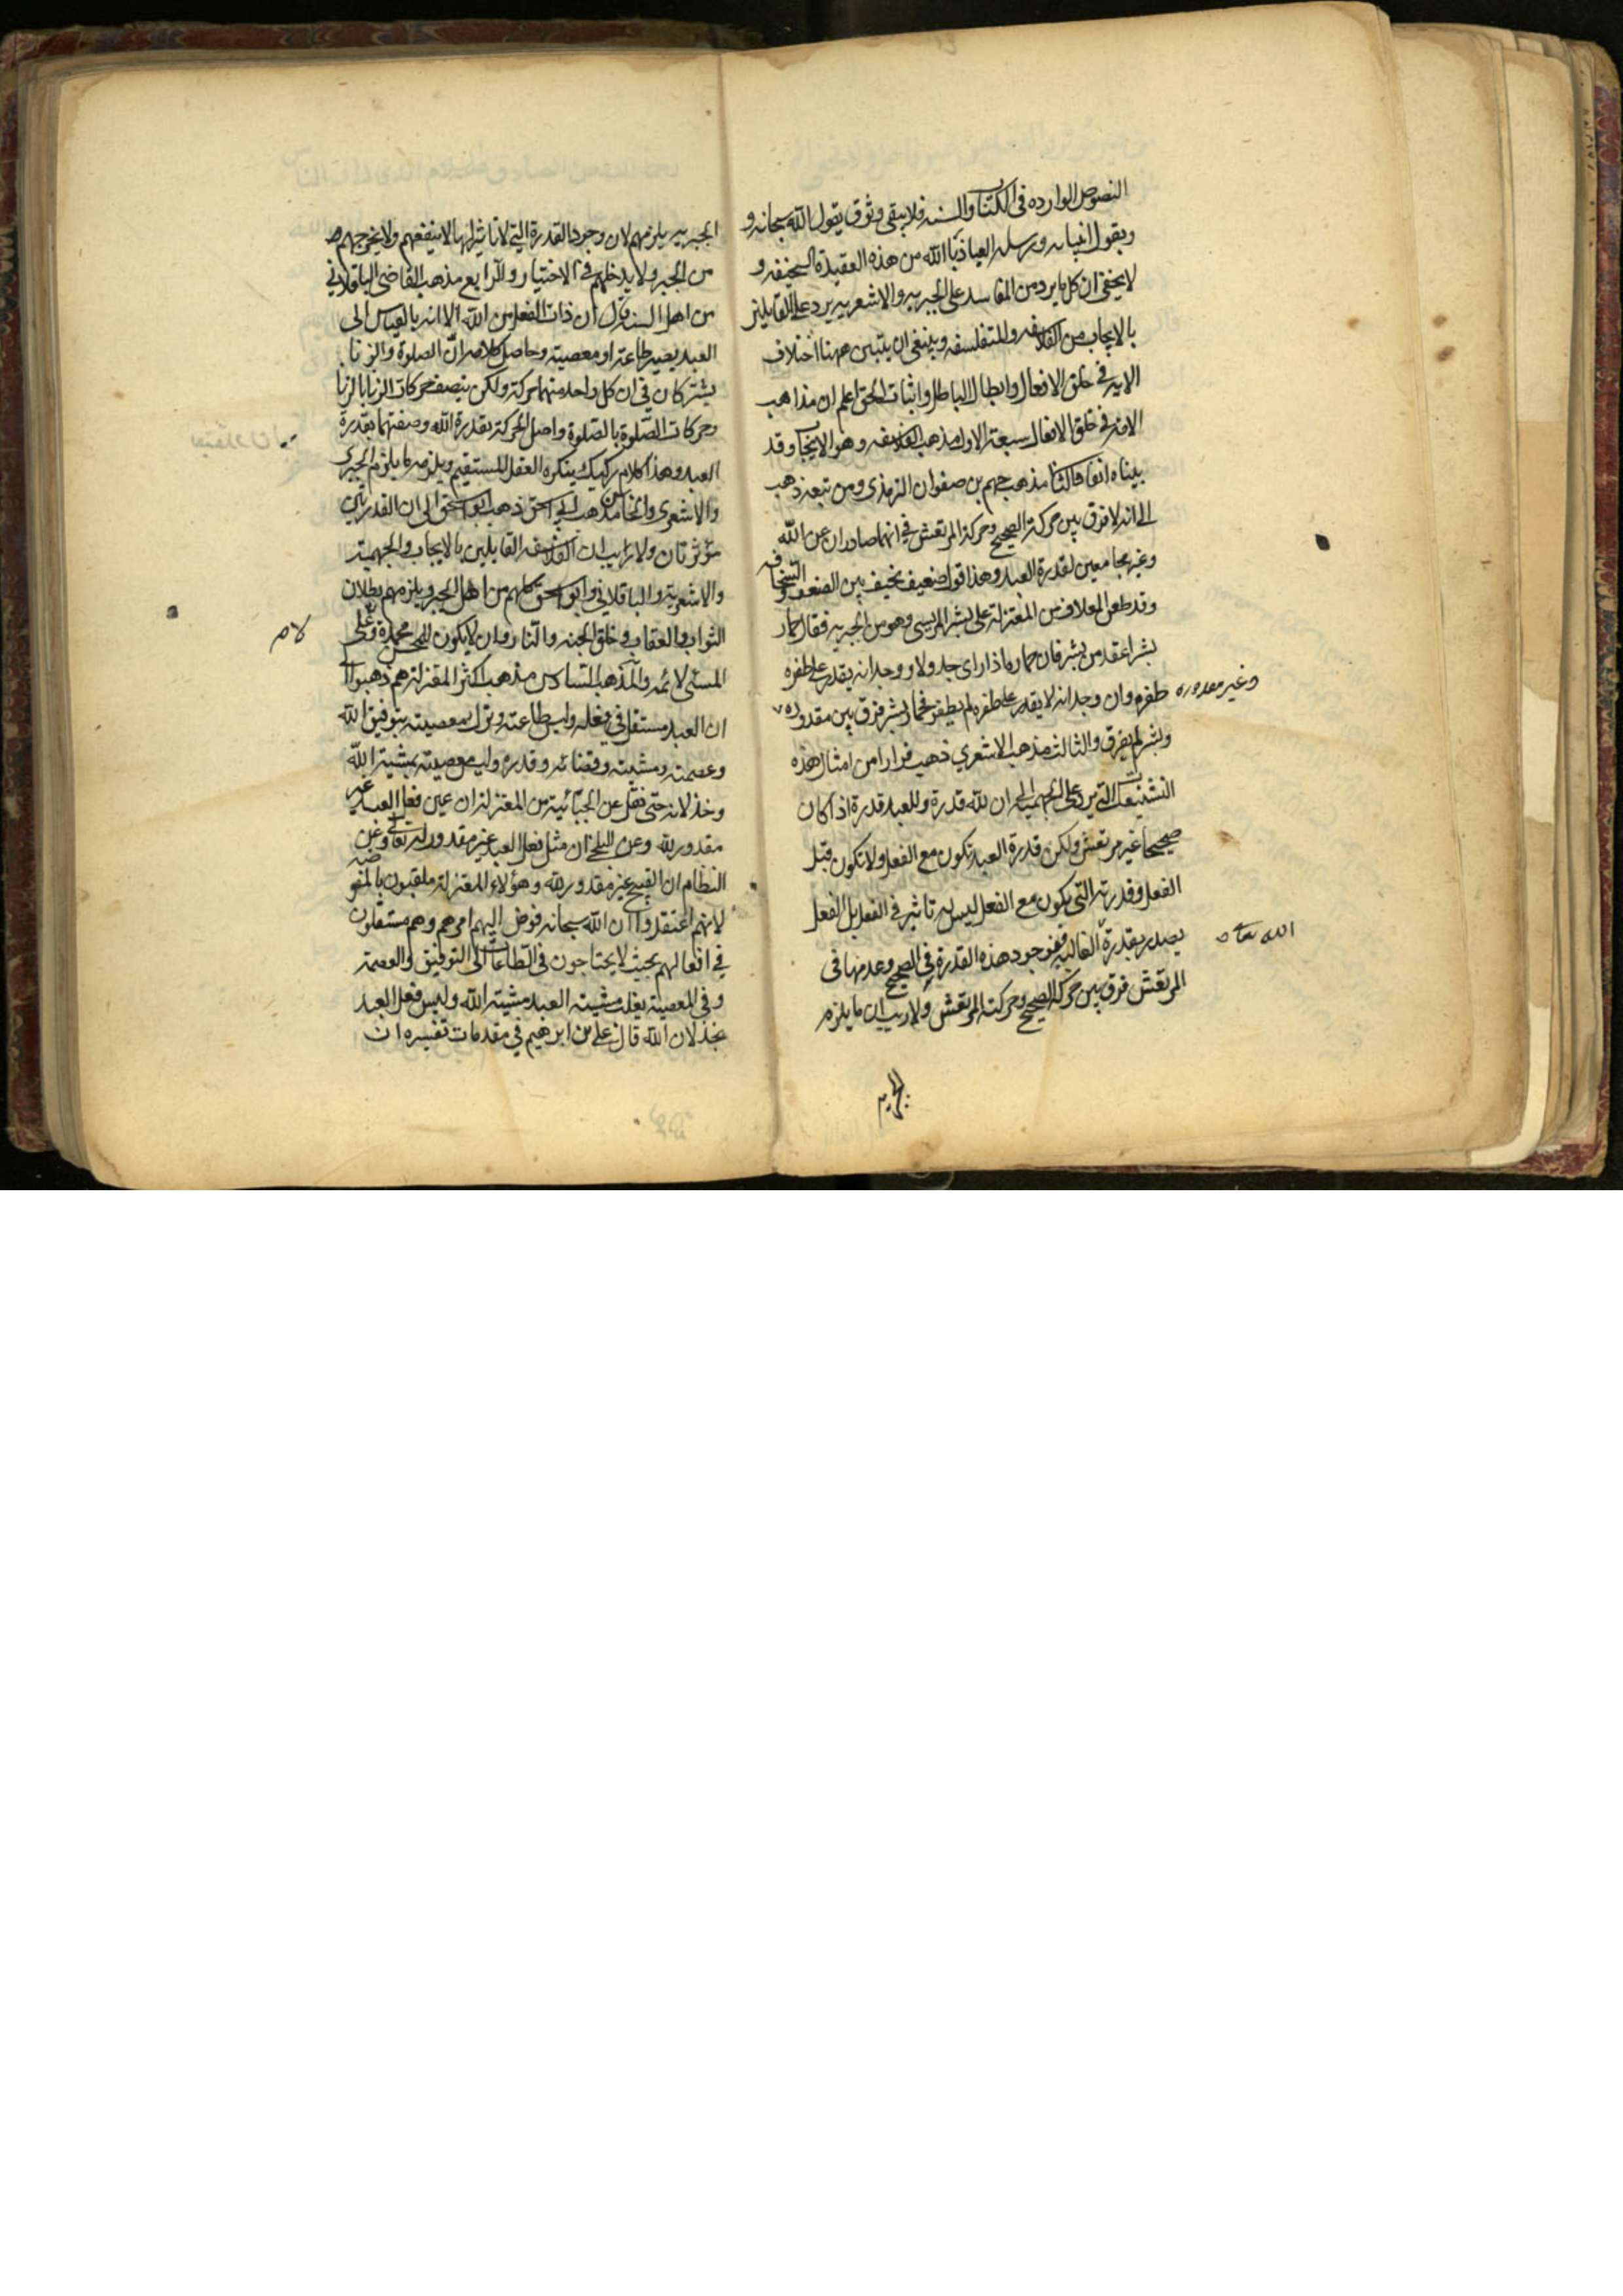 النصوص الوارده فى الكتاب والسنه فلا يبقى وثوق بقول الله سبحانه و
وبقول انبيائه ورسله العياذ بالله من هذه العقيدة السخيفه و
لا يخفى ان كل ما يرد من المفاسد على الجبريه والاشعريه يرد على القايلين
بالايجاب من الفلاسفه والمتفلسفه وينبغى ان يتبين ههنا اختلاف
الايه فى خلق الافعال وابطال الباطل واثبات الحق اعلم ان مذاهب
الامة فى خلق الافعال سبعة الاول مذهب الفلاسفه وهو الايجاب وقد
بيناه انفا مذهب جهم بن صفوان الترمذى ومن تبعه ذهب
الى انه لا فرق بين حركة الصحيح وحركة المرتعش فى انهما صادران عن الله
وغير مجامعين لقدرة العبد وهذا قول ضعيف نحيف بين الضعف والسخافه
وقد طعن العلاف من المعتزلة على بشر المريسى وهو من الجبريه فقال حمار
بشر اعقد من بشر فان حماره اذا راى جدولا ووجد انه يقدر على طفره
طفره وان وجد انه لا يقدر على طفره لم يطفر فحمار بشر فرق بين مقدوره
وغير مقدوره
وبشر لم يفرق والثالث مذهب الاشعري ذهب فرارا من امثال هذه
التشنيعات التى يرد على الجهمية الى ان لله قدرة وللعبد قدرة اذا كان
صحيحا غير مرتعش ولكن قدرة العبد تكون مع الفعل ولا تكون قبل
الفعل وقدرته التى يكون مع الفعل ليس له تاثير فى الفعل بل الفعل
يصدر بقدرة الغالبه فوجود هذه القدرة فى الصحيح وعدمها فى
الله تعا
المرتعش فرق بين حركة الصحيح وحركة المرتعش ولا ريب ان ما يلزم
الجبريه
الجبريه يلزمهم لان وجود القدرة التى لا تاثير لها لا ينفعهم ولا يخرجهم
من الجبر ولا يدخلهم فى الاختيار والرابع مذهب القاضى الباقلانى
من اهل السنة قال ان ذات الفعل من الله الا انه بالقياس الى
العبد يصير طاعة او معصية وحاصل كلامه ان الصلوة والزنا
يشتركان فى ان كل واحد منهما حركة ولكن يتصف حركات الزنا بالزنا
وحركات الصلوة بالصلوة واصل الحركة بقدرة الله وصفتها بقدرة
العبد وهذا كلام ركيك ينكره العقل المستقيم ويلزمه ما يلزم الجبرى
والاشعرى والخامس مذهب ابى اسحق ذهب ابو اسحق الى ان القدرتين
مؤثرتان ولا ريب ان الفلاسفه القايلين بالايجاب والجهمية
والاشعرية والباقلانى وابو اسحق كلهم من اهل الجبر ويلزمهم بطلان
الثواب والعقاب وخلق الجنه والنار وان لا يكون للمحسن محمدة وعلى
المسئى لائمه والمذهب السادس مذهب اكثر المعتزلة هم ذهبوا الى
ان العبد مستقل فى فعله وليس طاعته وترك معصيته بتوفيق الله
وعصمته ومشيته وقضائه وقدره وليس معصيته بمشية الله
وخذلانه حتى نقل عن الجبائية من المعتزلة ان عين فعل العبد غير
مقدور لله وعن البلخى ان مثل فعل العبد غير مقدور له تعالى وعن
النظام ان القبيح غير مقدور لله وهؤلاء المعتزلة ملقبون بالمفوضه
لانهم اعتقدوا ان الله سبحانه فوض اليهم امرهم وهم مستقلون
فى افعالهم بحيث لا يحتاجون فى الطاعات الى التوفيق والعصمة
وفى المعصية يغلب مشية العبد مشية الله وليس فعل العبد
بخذلان الله قال على بن ابرهيم فى مقدمات تفسيره ان